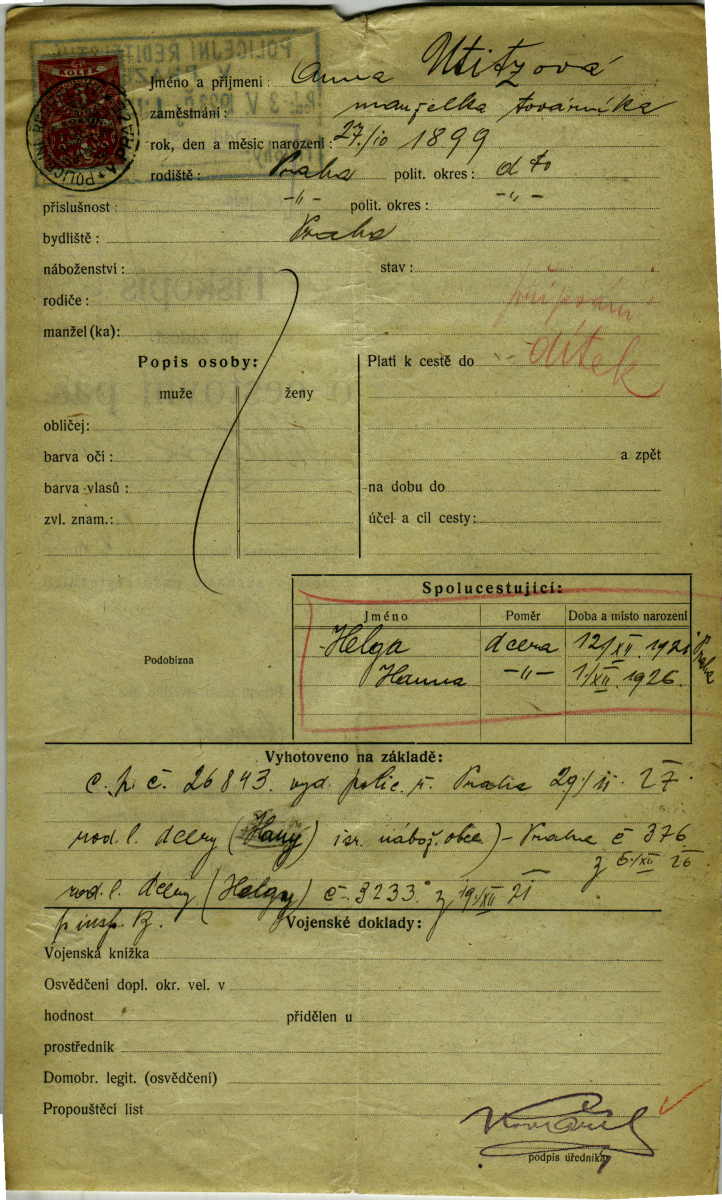 KOLEK
POLICEJNÍ ŘEDITELSTVÍ
V PRAZE
Jméno a přijmení: Anna Utitzová
zaměstnání: manželka továrníka
rok, den a měsíc narození: 27./10 1899
rodiště: Praha polit. okres: dto
příslušnost: -„- polit. okres: -„-
bydliště: Praha
náboženství: stav:
rodiče: připsání
manžel(ka): dítek
Popis osoby: Platí k cestě do
muže ženy
obličej:
barva očí: a zpět
barva vlasů: na dobu do
zvl. znam.: účel a cíl cesty:
Spolucestující:
Jméno Poměr Doba a místo narození
Helga dcera 12/XII. 1921 Praha
Hanna -„- 1/XII. 1926.
Podobizna
Vyhotoveno na základě:
c. p. č. 26843. vyd. polic. ř. Praha 29/II. 27.
rod. l. dcery (Hany) isr. nábož. obce) - Praha č 376
z 6./XII 26
rod. l. dcery (Helgy) č. 3233. z 19./XII 21
Vojenské doklady:
Vojenská knížka
Osvědčení dopl. okr. vel. v
hodnost přidělen u
prostředník
Domobr. legit. (osvědčení)
Propouštěcí list
podpis úředníka